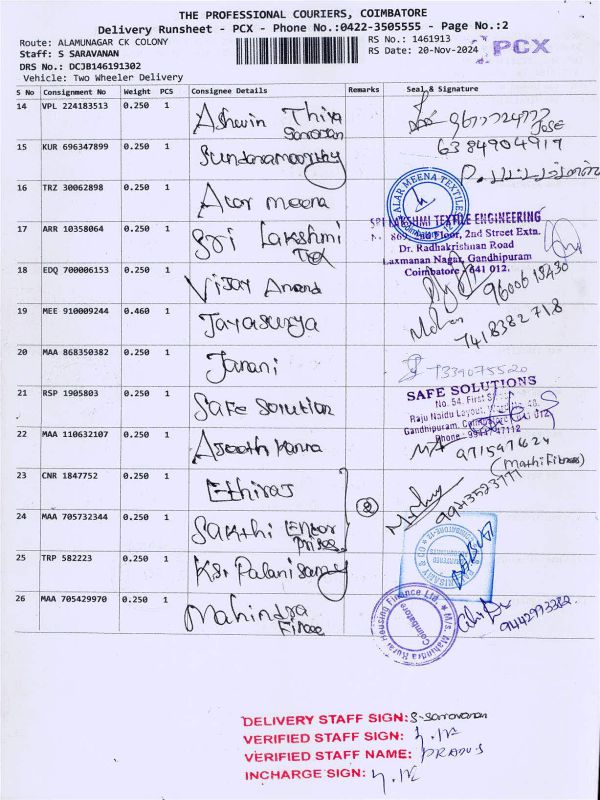 THE PROFESSIONAL COURIERS, COIMBATORE
Delivery Runsheet - PCX - Phone No.:0422-3505555 - Page No.:2
Route: ALAMUNAGAR CK COLONY
Staff: S SARAVANAN
DRS No.: DCJB146191302
Vehicle: Two Wheeler Delivery
RS No.: 1461913
RS Date: 20-Nov-2024
PCX
S No Consignment No Weight PCS Consignee Details Remarks Seal & Signature
14 VPL 224183513 0.250 1 Ashwin Thiya
JOSE
15 KUR 696347899 0.250 1 Sundaramoorthy 6384904917
16 TRZ 30062898 0.250 1 Alar meena
ALAR MEENA TEXTILE
Coimbatore-12
17 ARR 10358064 0.250 1 Sri Lakshmi
Tex
SRI LAKSHMI TEXTILE ENGINEERING
2nd Floor, 2nd Street Extn.
Dr. Radhakrishnan Road
Laxmanan Nagar, Gandhipuram
Coimbatore - 641 012.
18 EDQ 700006153 0.250 1 Vijay Anand
19 MEE 910009244 0.460 1 Jayasurya
7418382718
20 MAA 868350382 0.250 1 Janani 7339075520
21 RSP 1905803 0.250 1 Safe Solution
SAFE SOLUTIONS
No. 54, First
Raju Naidu Layout,
Gandhipuram,
Phone
22 MAA 110632107 0.250 1 Ajeeth Kanna
(Mathi Fitness)
23 CNR 1847752 0.250 1 Ethiraj
2
24 MAA 705732344 0.250 1 Sakthi Enter
Prises
25 TRP 582223 0.250 1 KSr Palanisamy
COIMBATORE-12
26 MAA 705429970 0.250 1 Mahindra
Finace
M/s. Mahindra Rural Housing Finance Ltd
Coimbatore
9442993382
DELIVERY STAFF SIGN: S-Saravanan
VERIFIED STAFF SIGN:
VERIFIED STAFF NAME:
INCHARGE SIGN: